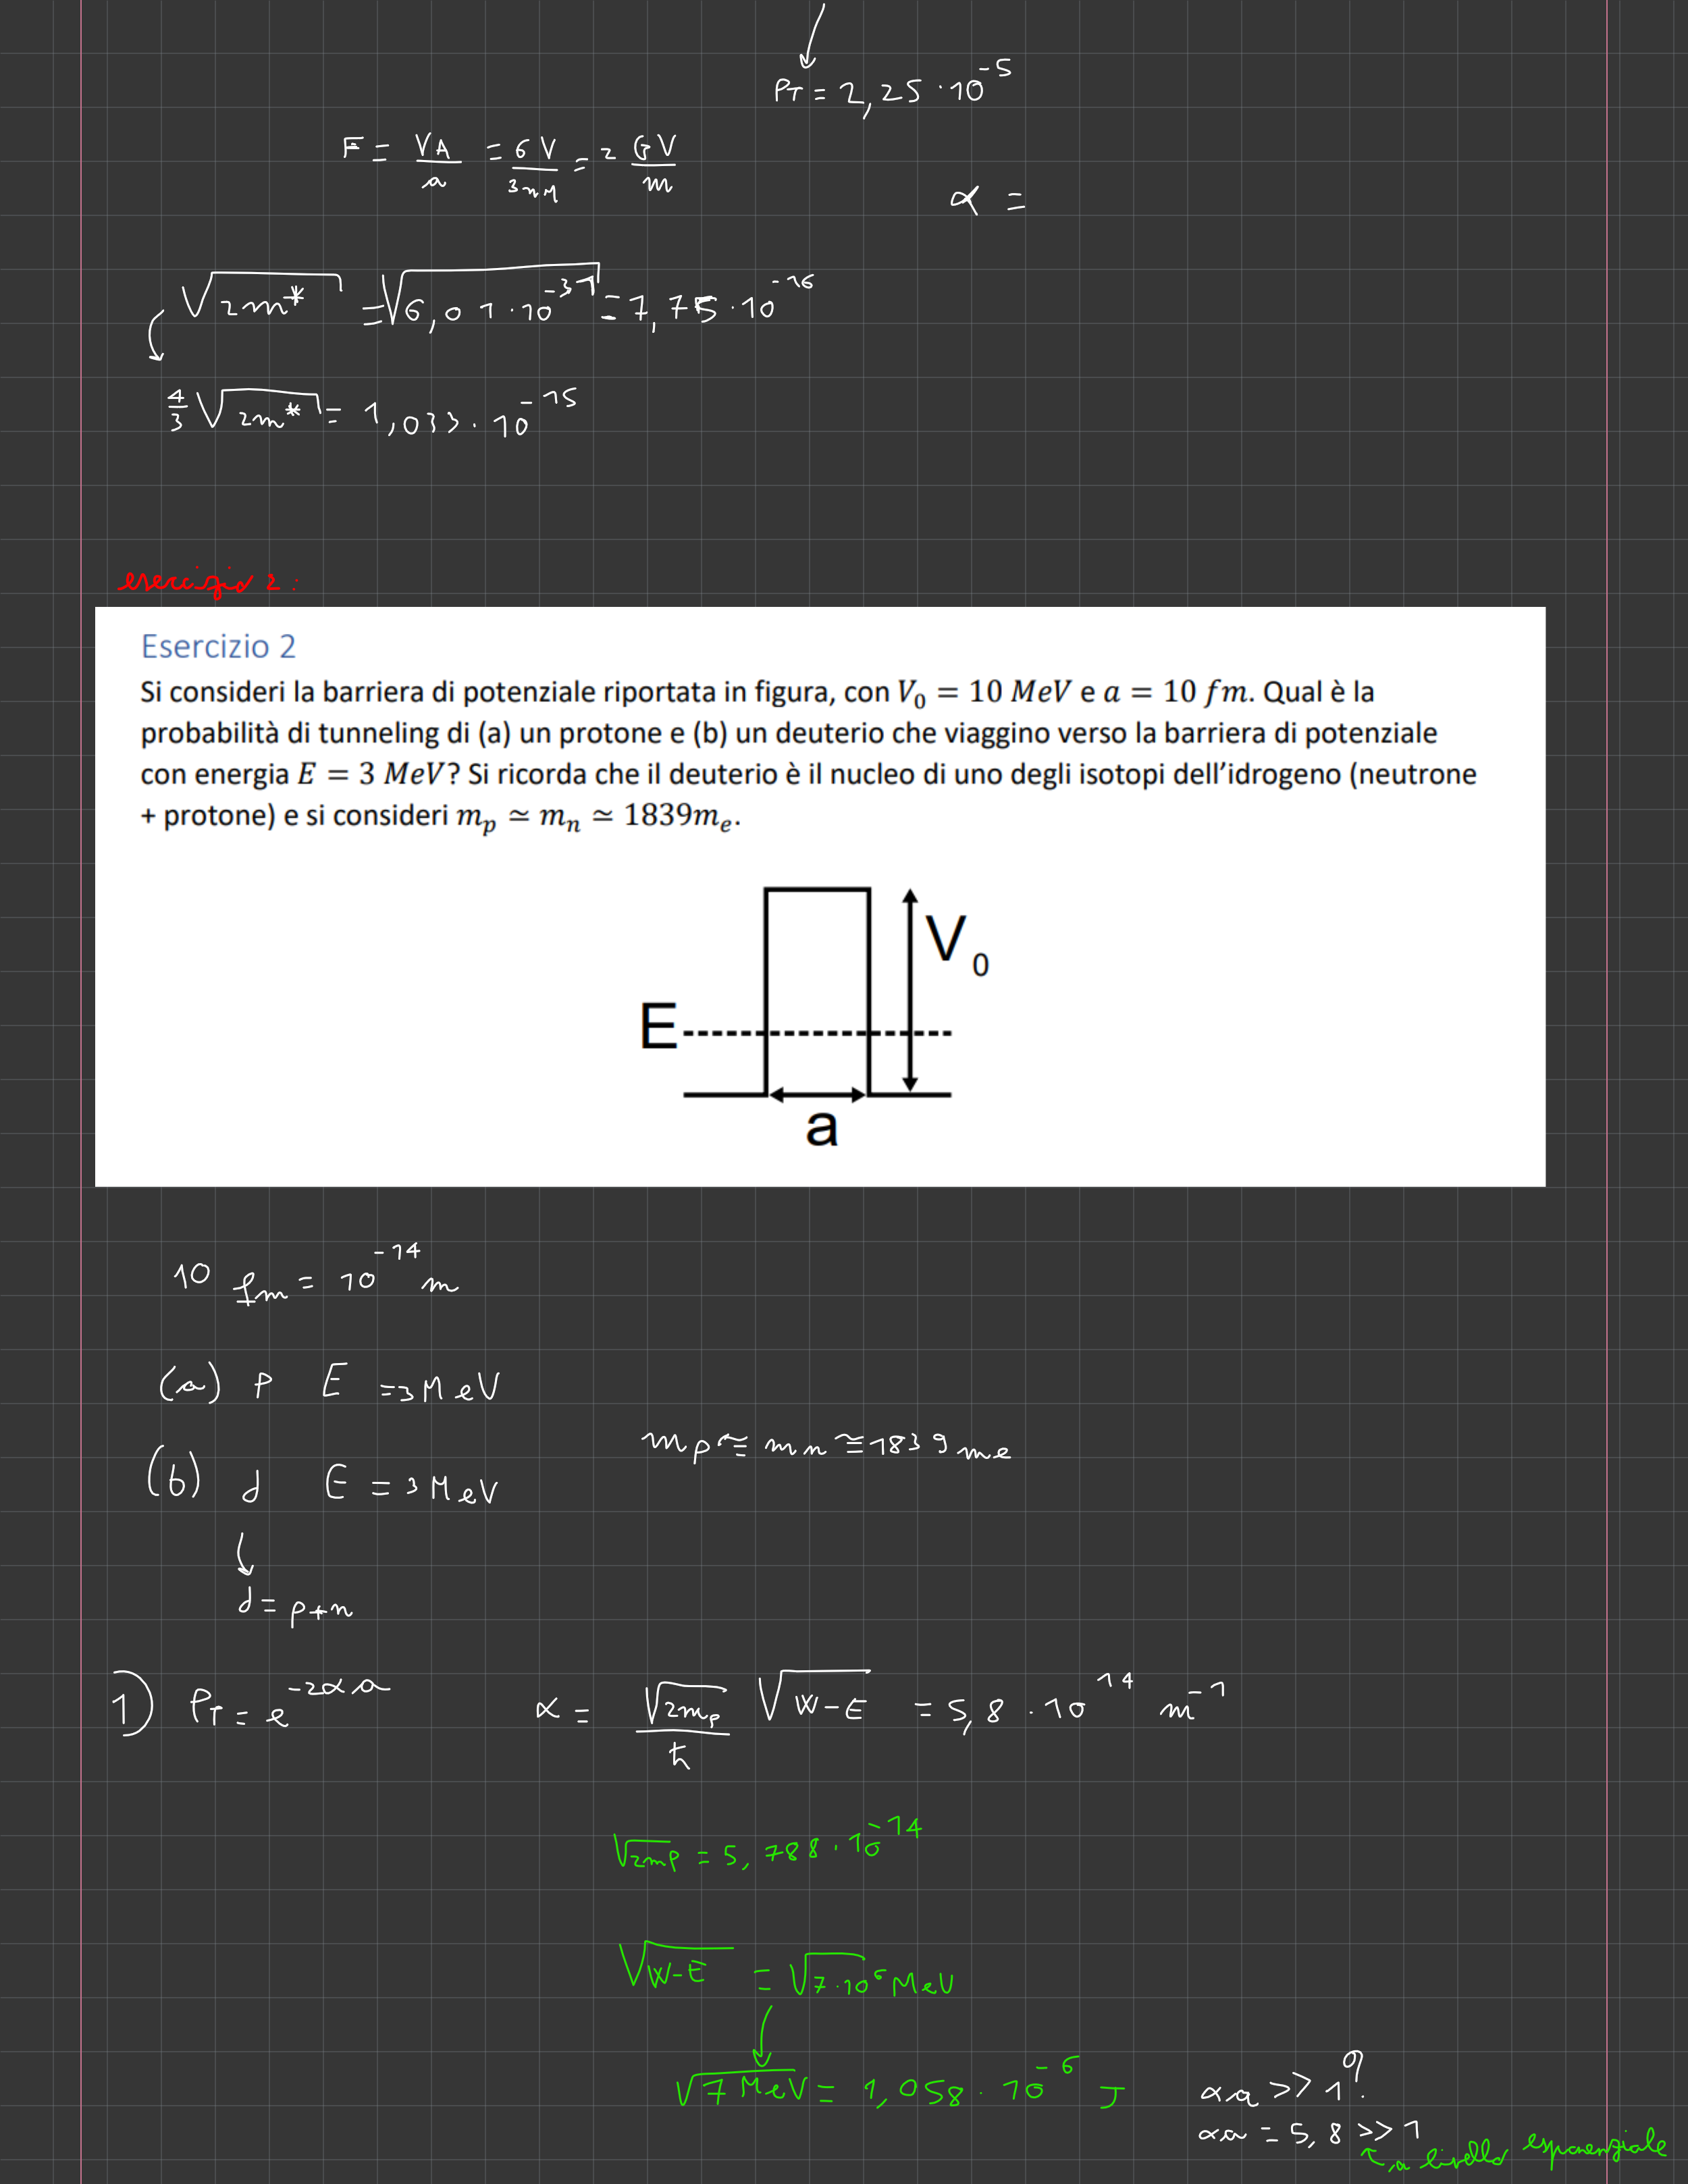 PT = 2,25 · 10^-5
F = VA/a = 6V/3nM = 2 GV/m
α =
√2m* = √6,01·10^-31 = 7,75·10^-16
4/3 √2m* = 1,033·10^-15
esercizio 2:
Esercizio 2
Si consideri la barriera di potenziale riportata in figura, con V₀ = 10 MeV e a = 10 fm. Qual è la
probabilità di tunneling di (a) un protone e (b) un deuterio che viaggino verso la barriera di potenziale
con energia E = 3 MeV? Si ricorda che il deuterio è il nucleo di uno degli isotopi dell'idrogeno (neutrone
+ protone) e si consideri mₚ ≃ mₙ ≃ 1839mₑ.
V₀
E
a
10 fm = 10^-14 m
(a) P E = 3 MeV
mp ≅ mn ≅ 1839 me
(b) d E = 3 MeV
d = p+n
1) PT = e^-2αa α = √2mp/ħ √W-E = 5,8 · 10^14 m^-1
√2mp = 5,788 · 10^-14
√W-E = √7·10^6 MeV
√7 MeV = 1,058 · 10^-6 J
αa >> 1?
αa = 5,8 >> 1
a livello esponenziale